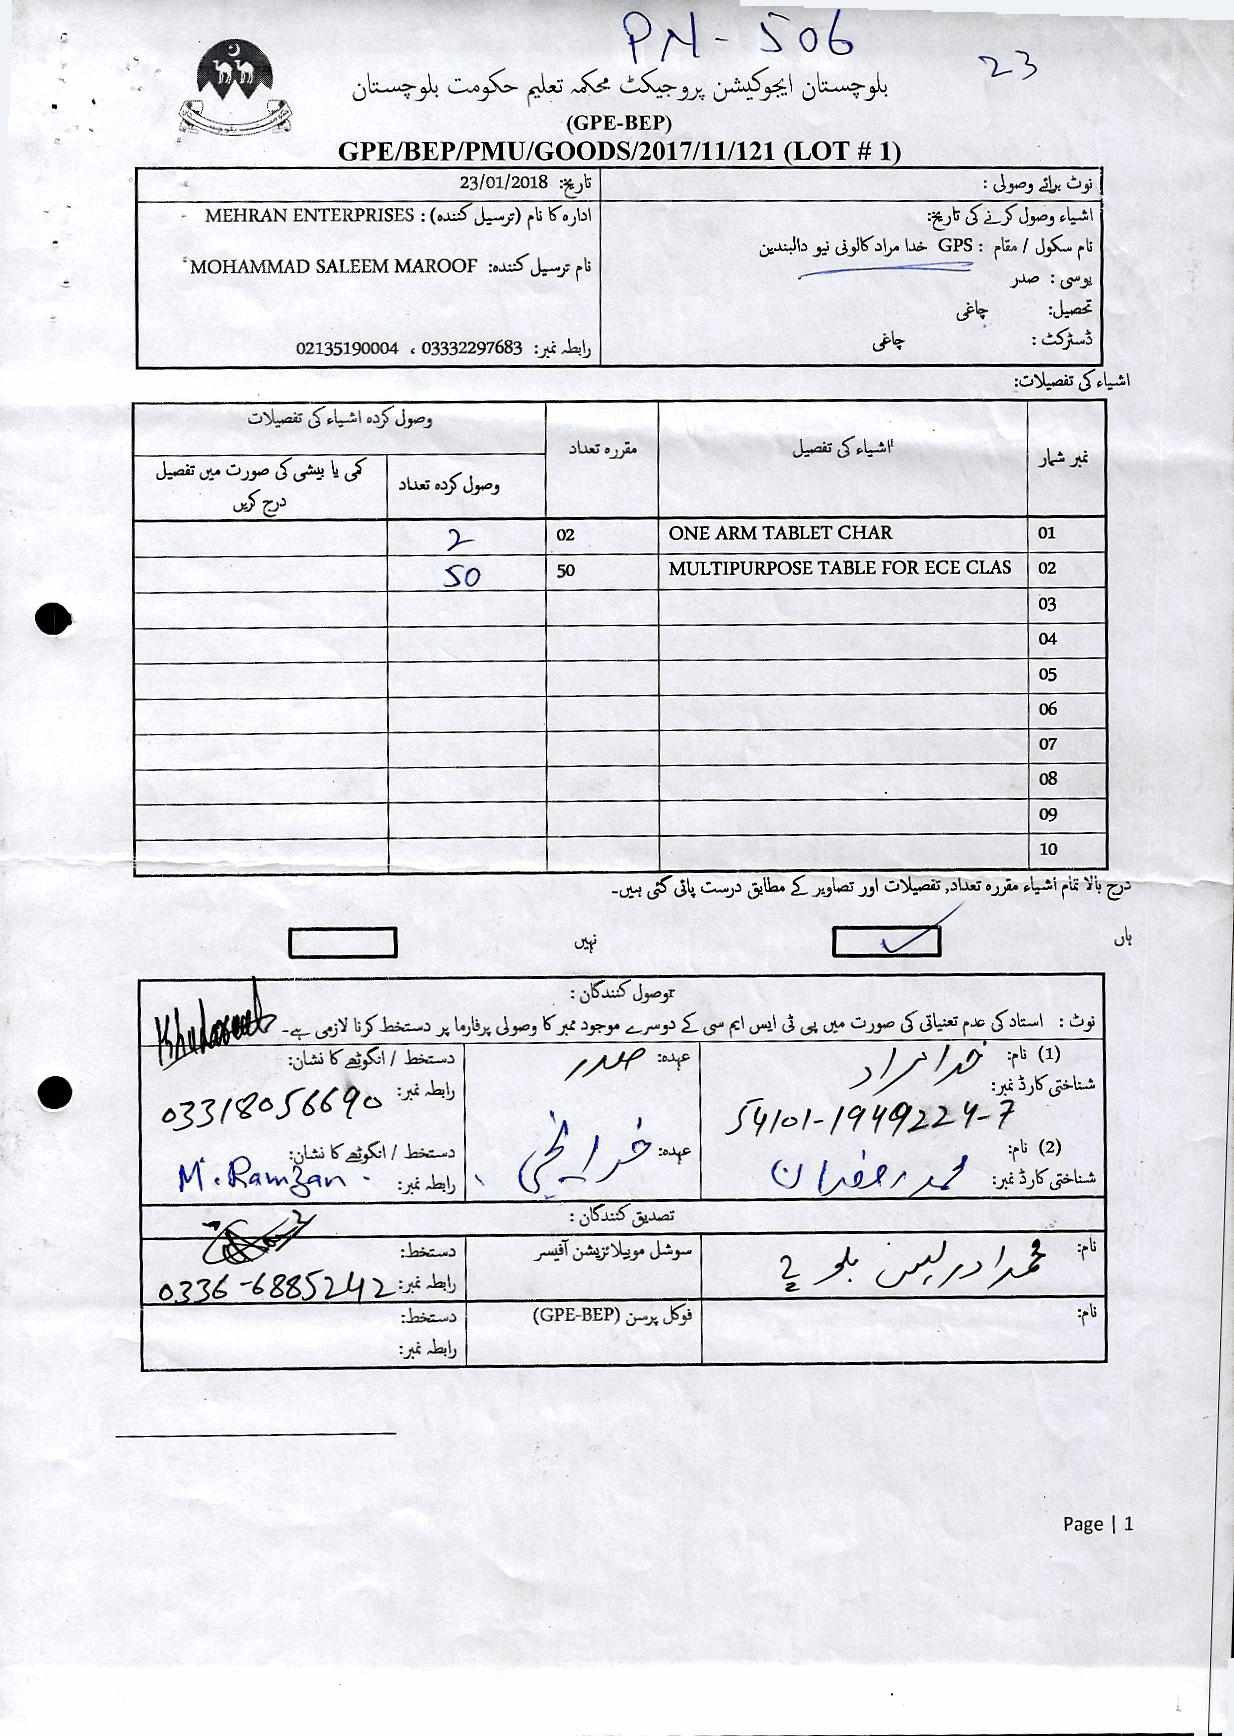 PN - 506
23
بلوچستان ایجوکیشن پروجیکٹ محکمہ تعلیم حکومت بلوچستان
(GPE-BEP)
GPE/BEP/PMU/GOODS/2017/11/121 (LOT # 1)
نوٹ برائے وصولی :
تاریخ: 23/01/2018
اشیاء وصول کرنے کی تاریخ:
نام سکول / مقام : GPS خدا مراد کالونی نیو دالبندین
یوسی : صدر
تحصیل: چاغی
ڈسٹرکٹ : چاغی
ادارہ کا نام (ترسیل کنندہ) : MEHRAN ENTERPRISES
نام ترسیل کنندہ: MOHAMMAD SALEEM MAROOF
رابطہ نمبر: 03332297683 ، 02135190004
اشیاء کی تفصیلات:
نمبر شمار اشیاء کی تفصیل مقررہ تعداد وصول کردہ اشیاء کی تفصیلات
وصول کردہ تعداد کمی یا بیشی کی صورت میں تفصیل درج کریں
01 ONE ARM TABLET CHAR 02 2
02 MULTIPURPOSE TABLE FOR ECE CLAS 50 50
03
04
05
06
07
08
09
10
درج بالا تمام اشیاء مقررہ تعداد, تفصیلات اور تصاویر کے مطابق درست پائی گئی ہیں۔
ہاں ✓ نہیں
وصول کنندگان :
نوٹ : استاد کی عدم تعیناتی کی صورت میں پی ٹی ایس ایم سی کے دوسرے موجود ممبر کا وصولی پرفارما پر دستخط کرنا لازمی ہے۔
(1) نام: خدا مراد عہدہ: صدر دستخط / انگوٹھے کا نشان:
شناختی کارڈ نمبر: 54101-1949224-7 رابطہ نمبر: 03318056690
(2) نام: محمد رمضان عہدہ: خزانچی دستخط / انگوٹھے کا نشان: M. Ramzan
شناختی کارڈ نمبر: رابطہ نمبر:
تصدیق کنندگان :
نام: محمد ادریس بلوچ سوشل موبیلائزیشن آفیسر دستخط:
رابطہ نمبر: 0336-6885242
نام: فوکل پرسن (GPE-BEP) دستخط:
رابطہ نمبر:
Page | 1